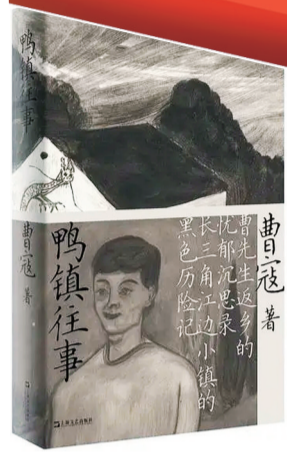 鸭镇往事
曹寇 著
鸭镇往事
曹先生返乡的
忧郁沉思录
长三角江边小镇的
黑色历险记
曹寇 著
上海文艺出版社